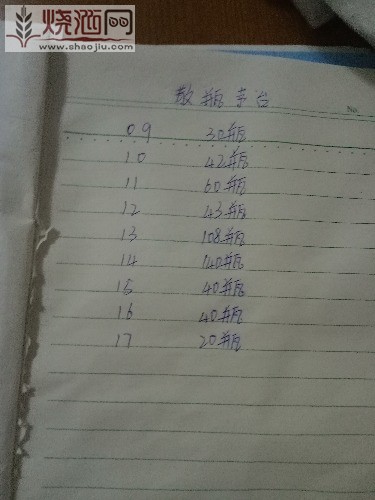 烧酒网
www.shaojiu.com
散瓶茅台
No.
09 30瓶
10 42瓶
11 60瓶
12 43瓶
13 108瓶
14 140瓶
15 40瓶
16 40瓶
17 20瓶